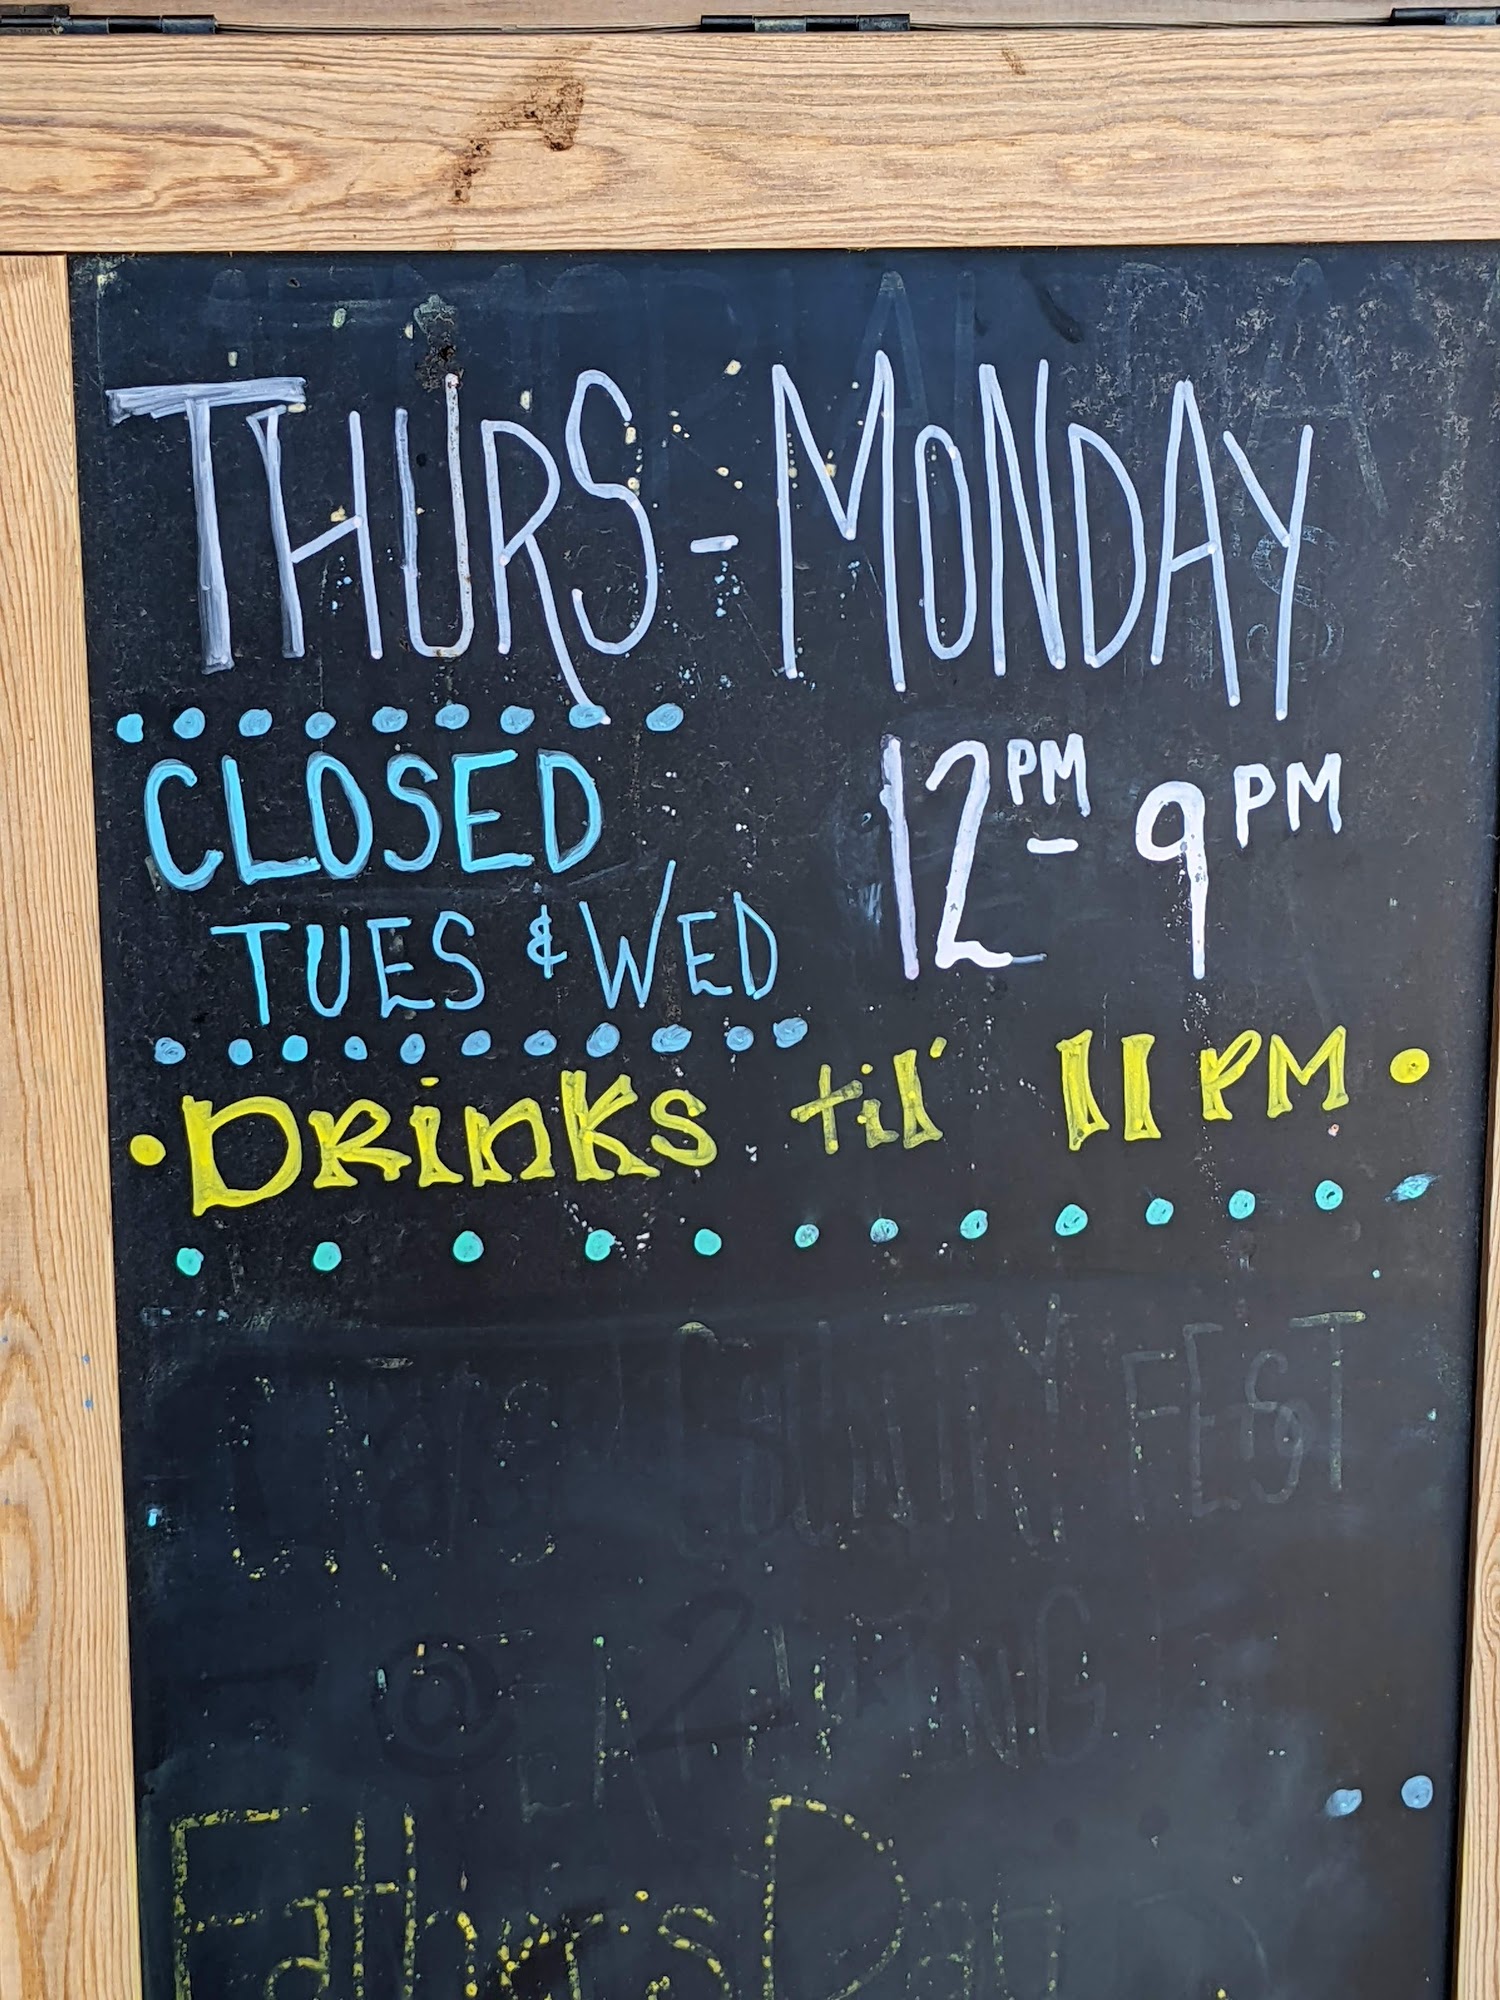 THURS - MONDAY
12PM - 9PM
CLOSED
TUES & WED
• DRiNKS til' 11 PM •
COUNTY FEST
@
Father's Day